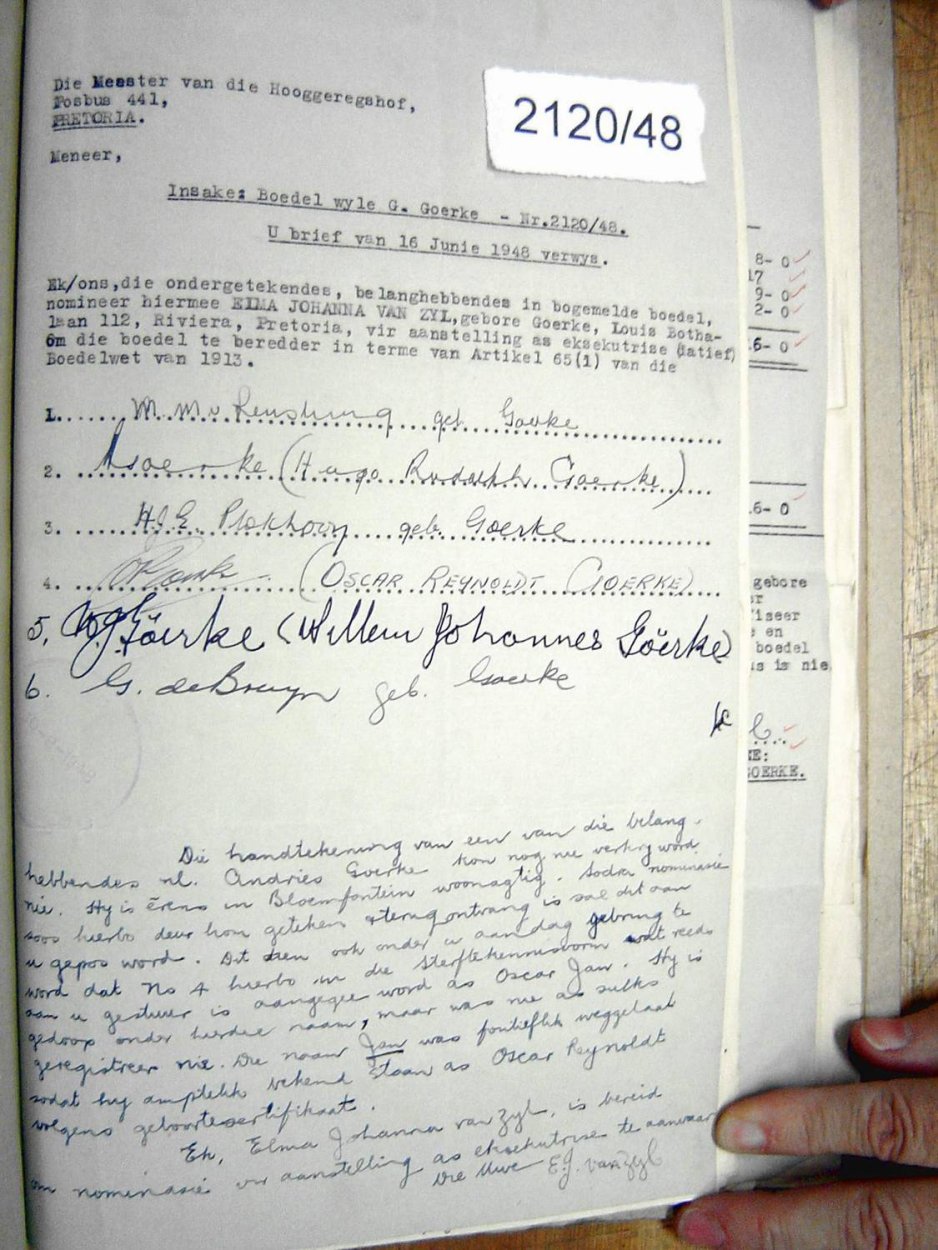 Die Meester van die Hooggeregshof,
Posbus 441,
PRETORIA.
2120/48
Meneer,
Insake: Boedel wyle G. Goerke - Nr.2120/48.
U brief van 16 Junie 1948 verwys.
Ek/ons,die ondergetekendes, belanghebbendes in bogemelde boedel,
nomineer hiermee ELMA JOHANNA VAN ZYL,gebore Goerke, Louis Botha-
laan 112, Riviera, Pretoria, vir aanstelling as eksekutrise (datief)
om die boedel te beredder in terme van Artikel 65(1) van die
Boedelwet van 1913.
1. M. M. v Rensburg geb. Goerke
2. Goerke (Hugo Rudolph Goerke)
3. H.J.E. Plokhooy geb. Goerke
4. (OSCAR REYNOLDT GOERKE)
5. W.J. Göerke (Willem Johannes Göerke)
6. G. de Bruyn geb. Goerke
Die handtekening van een van die belang-
hebbendes nl. Andries Goerke kon nog nie verkry word
nie. Hy is êrens in Bloemfontein woonagtig. Sodra nominasie
soos hierbo deur hom geteken & terug ontvang is sal dit aan
u gepos word. Dit dien ook onder u aandag gebring te
word dat No 4 hierbo in die sterfkennisvorm wat reeds
aan u gestuur is aangegee word as Oscar Jan. Hy is
gedoop onder hierdie naam, maar was nie as sulks
geregistreer nie. Die naam Jan was foutieflik weggelaat
sodat hy amptelik bekend staan as Oscar Reynoldt
volgens geboortesertifikaat.
Ek, Elma Johanna van Zyl, is bereid
om nominasie vir aanstelling as eksekutrise te aanvaar
Die Uwe E.J. van Zyl
8- 0
17
9- 0
2- 0
6- 0
6- 0
gebore
iseer
en
boedel
is nie
GOERKE.